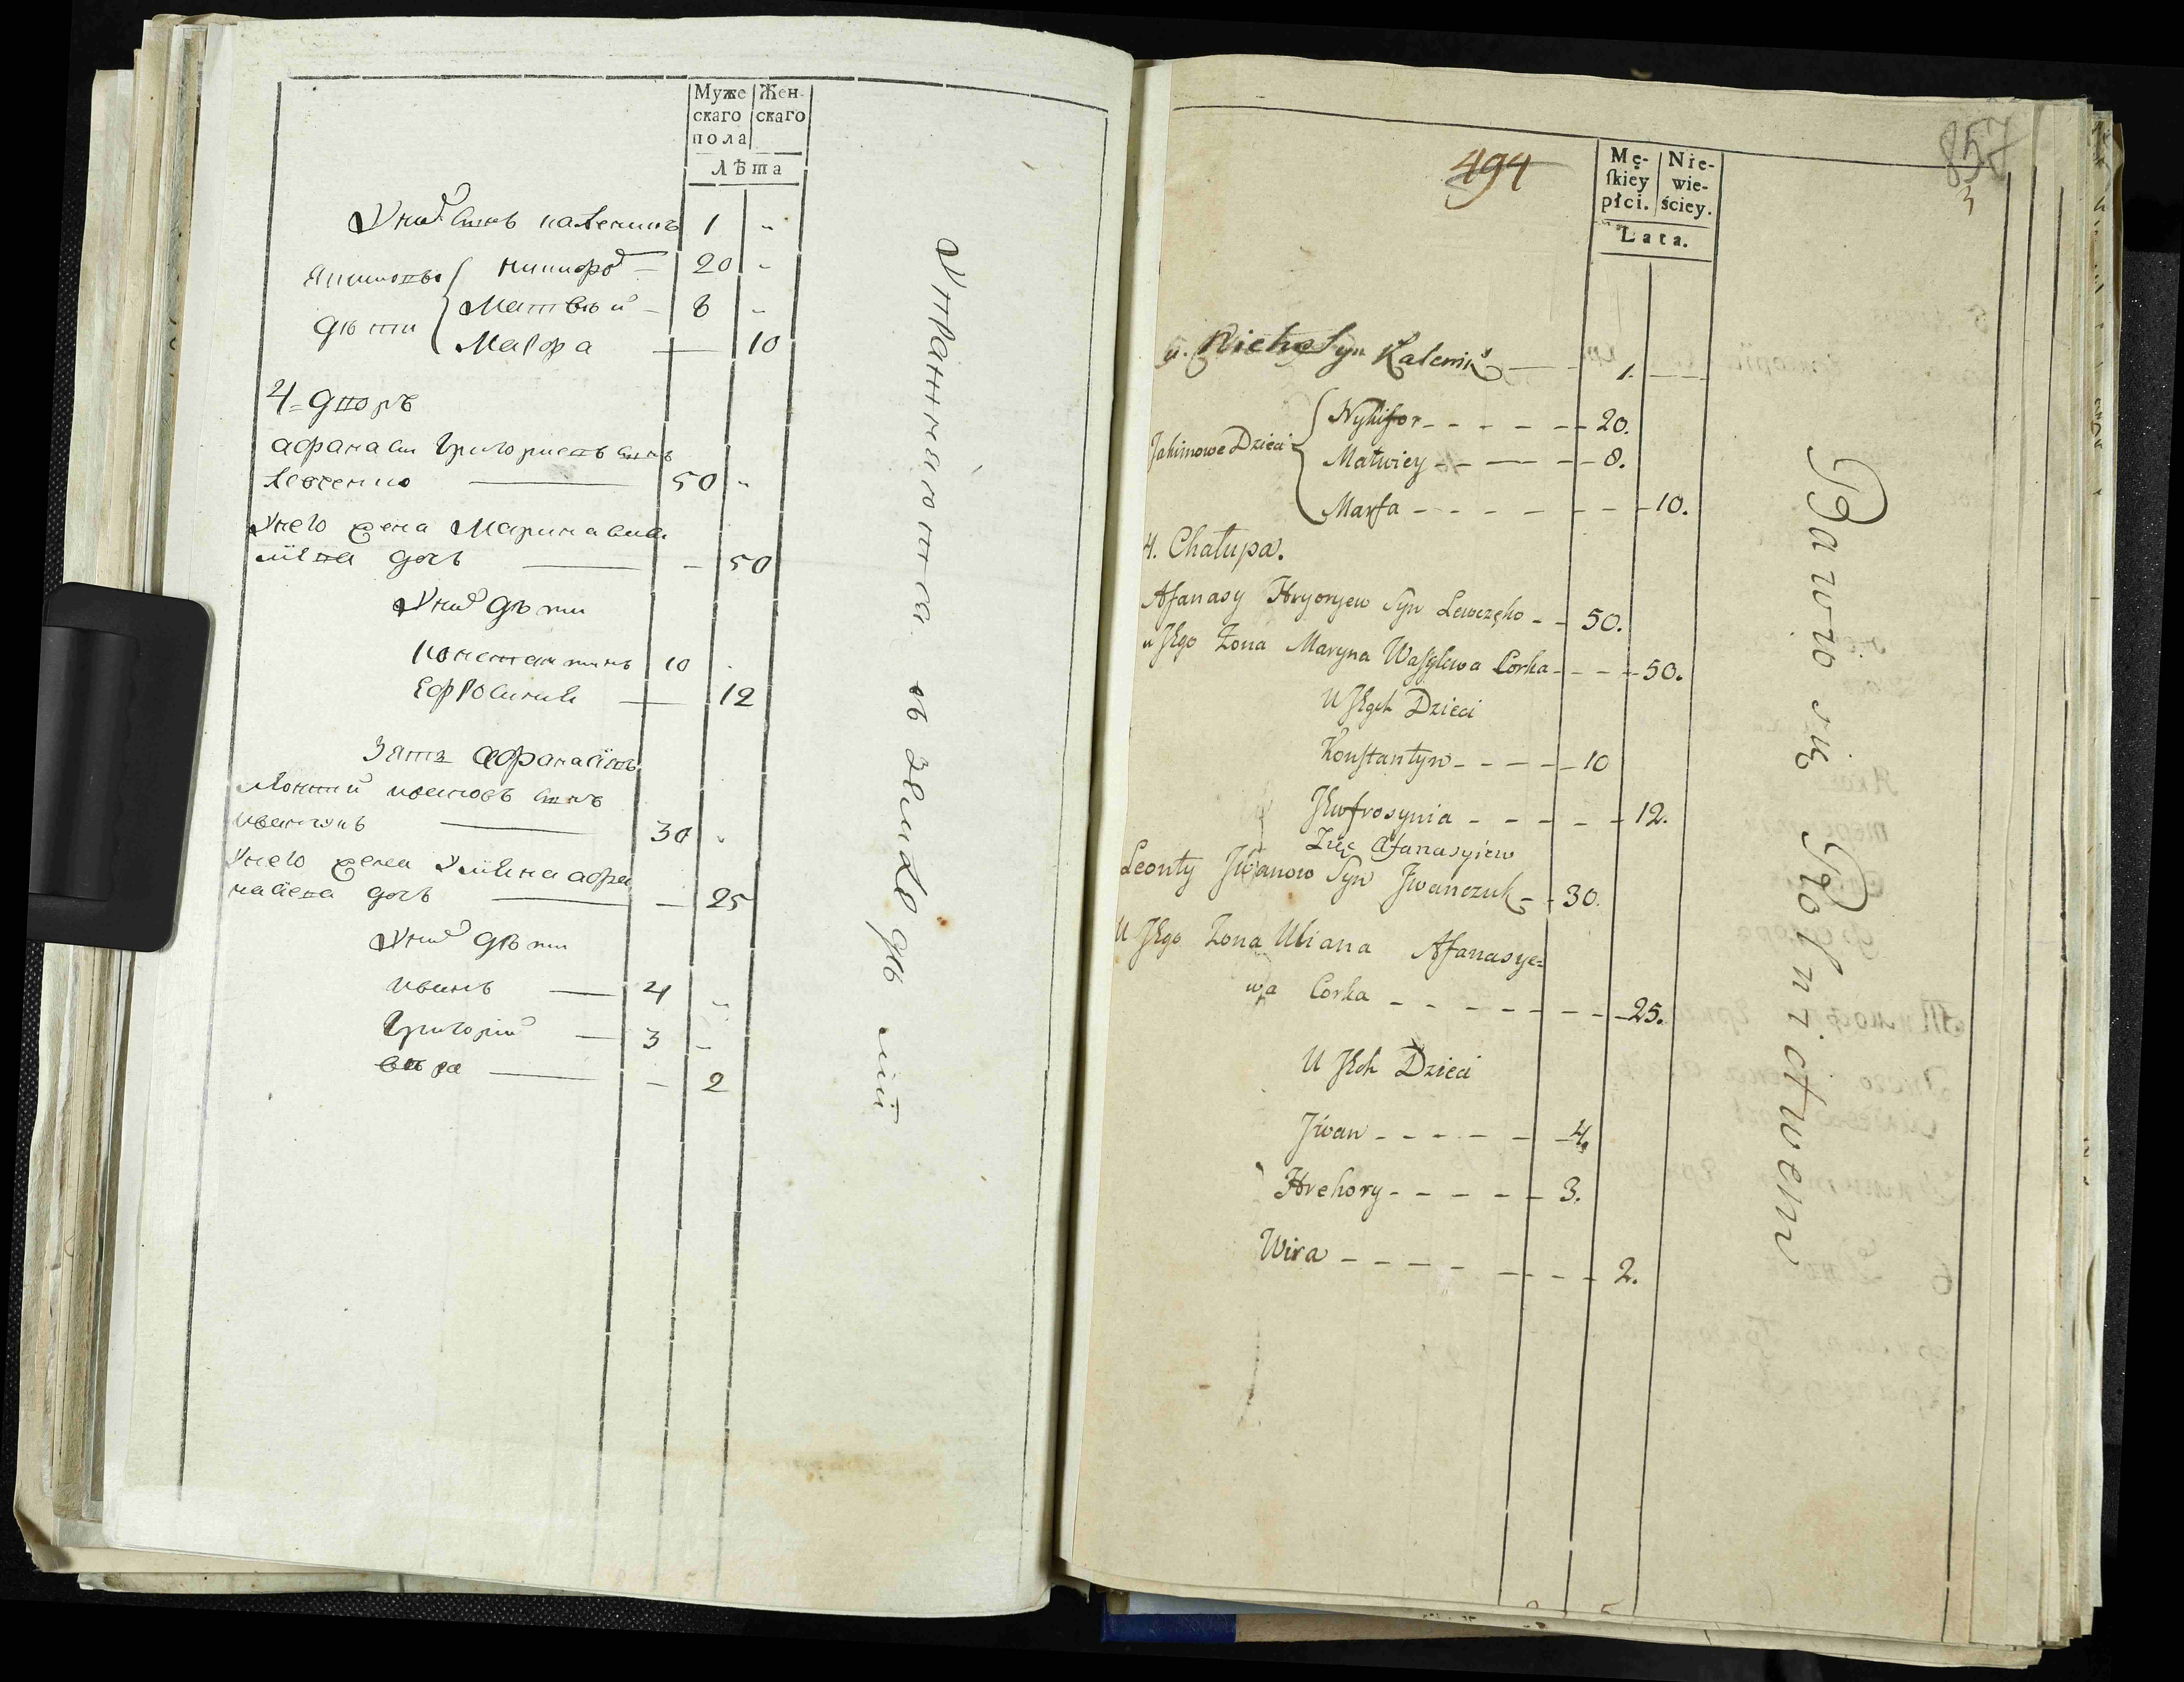 Муже Жен-
скаго скаго
пола
Лѣта
Уних Сынъ каленикъ 1 -
Якимовы Никифоръ 20 -
дѣти Матвѣй - 8 -
Мавфра 10
4-дворъ
афанаси Григориевъ Сынъ
левченко 50 -
Унего жена Марина васи
лиева дочь - 50
Уних дѣти
Константинъ 10 -
Ефросиния 12
Зять афанасиевъ
Леонтий ивановъ Сынъ
иванчукъ 30 -
Унего жена Улияна афа
насиева дочь - 25
Уних дѣти
иванъ 4 -
Григорий 3 -
вѣра - 2
Упражняются въ земледѣлии
494
857
3
Mę- Nie-
ſkiey wie-
płci. ściey.
Lata.
u. Nich Syn Kalenik 1.
Jakimowe Dzieci Nykifor 20.
Matwiey 8.
Marfa 10.
4. Chałupa.
Afanasy Hryoryew Syn Lewczęko 50.
u Jego Zona Maryna Wasylewa Corka 50.
U Jego Dzieci
Konstantyn 10
Jewfrosynia 12.
Zięć Afanasyiew
Leonty Jwanow Syn Jwanczuk 30.
U Jego Zona Uliana Afanasye=
wa Corka 25.
U Jch Dzieci
Jwan 4.
Hrehory 3.
Wira 2.
Bawią się Rolnictwem